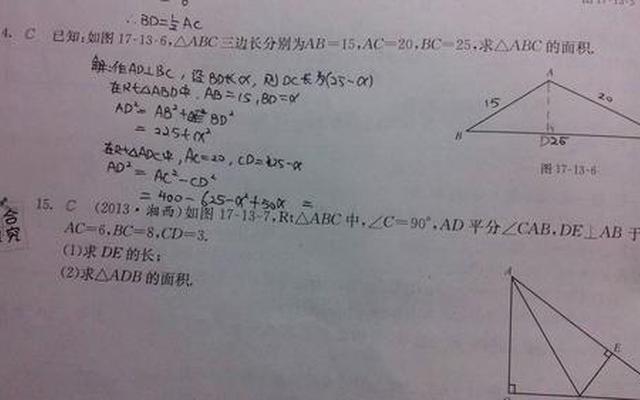 ∴BD=½AC
4. C 已知:如图 17-13-6,△ABC 三边长分别为AB=15,AC=20,BC=25,求△ABC 的面积.
解:作AD⊥BC, 设BD长x, 则DC长为(25-x)
在Rt△ABD中, AB=15,BD=x
AD²=AB²+BD²
=225+x²
在Rt△ADC中, AC=20, CD=25-x
AD²=AC²-CD²
=400-625-x²+50x =
A
15
20
B
D25
图 17-13-6
15. C (2013·湘西)如图 17-13-7,Rt△ABC 中,∠C=90°,AD 平分∠CAB,DE⊥AB 于
AC=6,BC=8,CD=3.
(1)求 DE 的长;
(2)求△ADB 的面积.
合
究
A
E